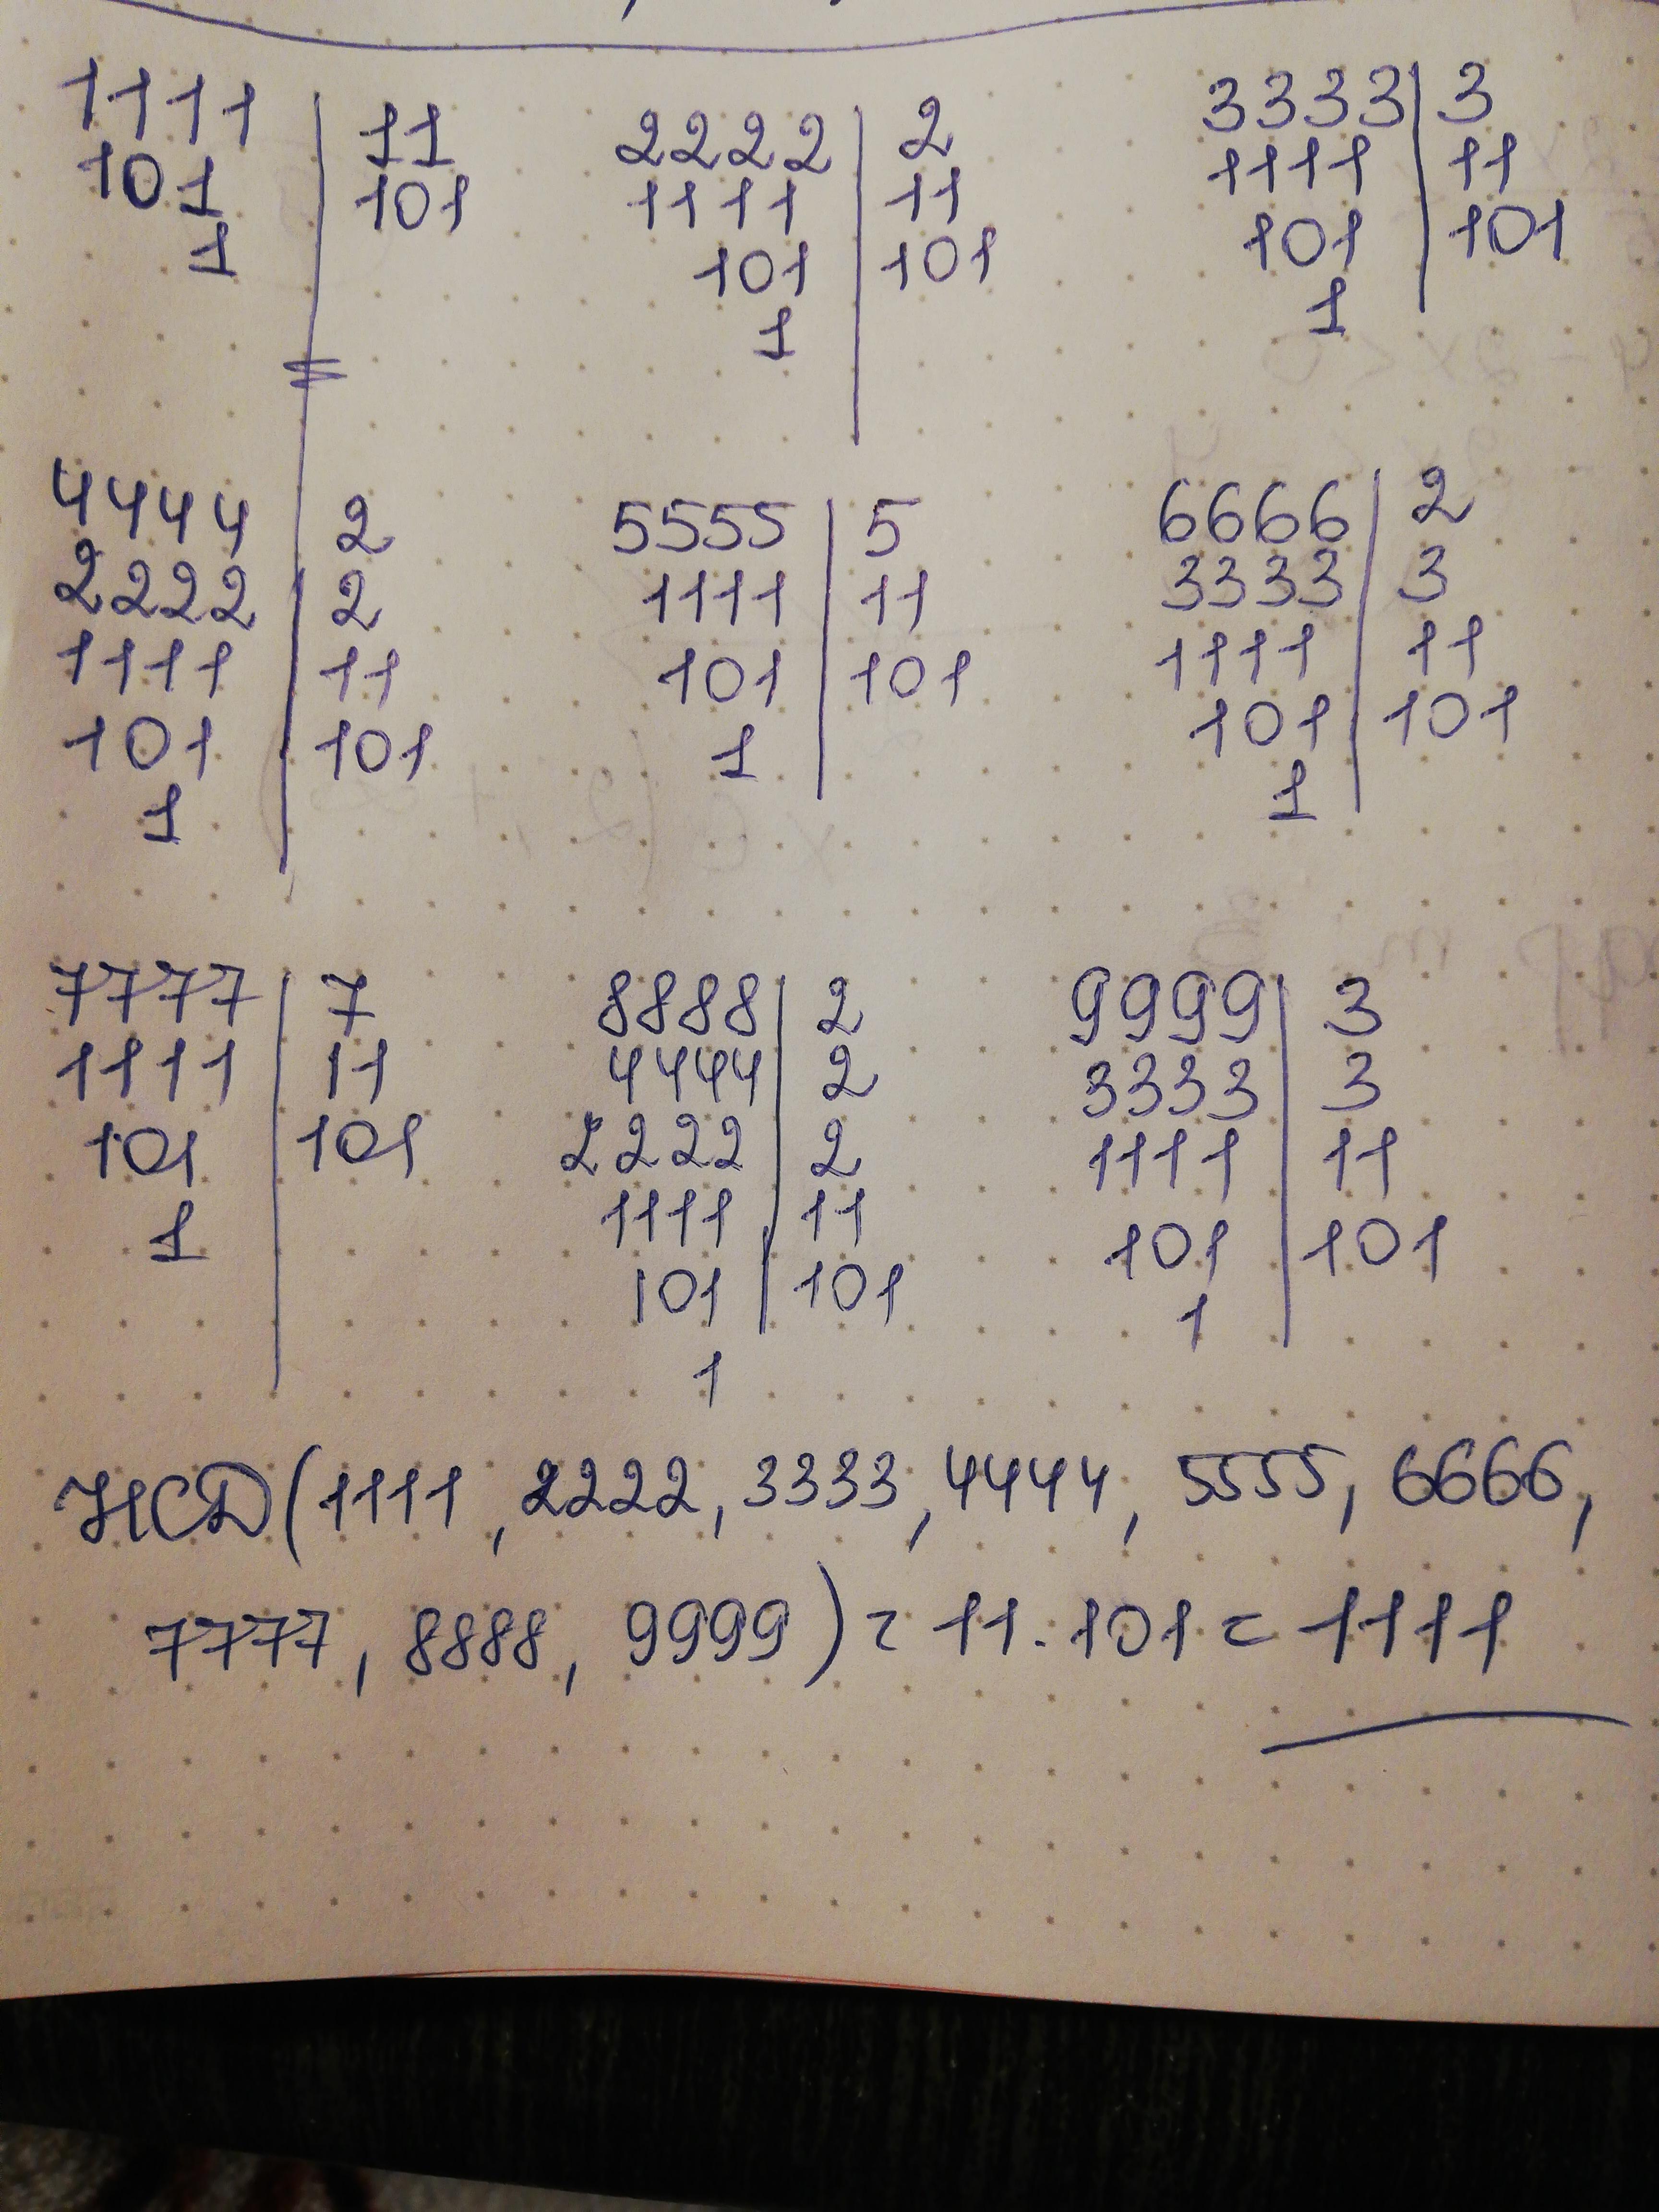 1111 | 11
101 | 101
1
2222 | 2
1111 | 11
101 | 101
1
3333 | 3
1111 | 11
101 | 101
1
4444 | 2
2222 | 2
1111 | 11
101 | 101
1
5555 | 5
1111 | 11
101 | 101
1
6666 | 2
3333 | 3
1111 | 11
101 | 101
1
7777 | 7
1111 | 11
101 | 101
1
8888 | 2
4444 | 2
2222 | 2
1111 | 11
101 | 101
1
9999 | 3
3333 | 3
1111 | 11
101 | 101
1
НСД(1111, 2222, 3333, 4444, 5555, 6666,
7777, 8888, 9999) = 11 . 101 = 1111